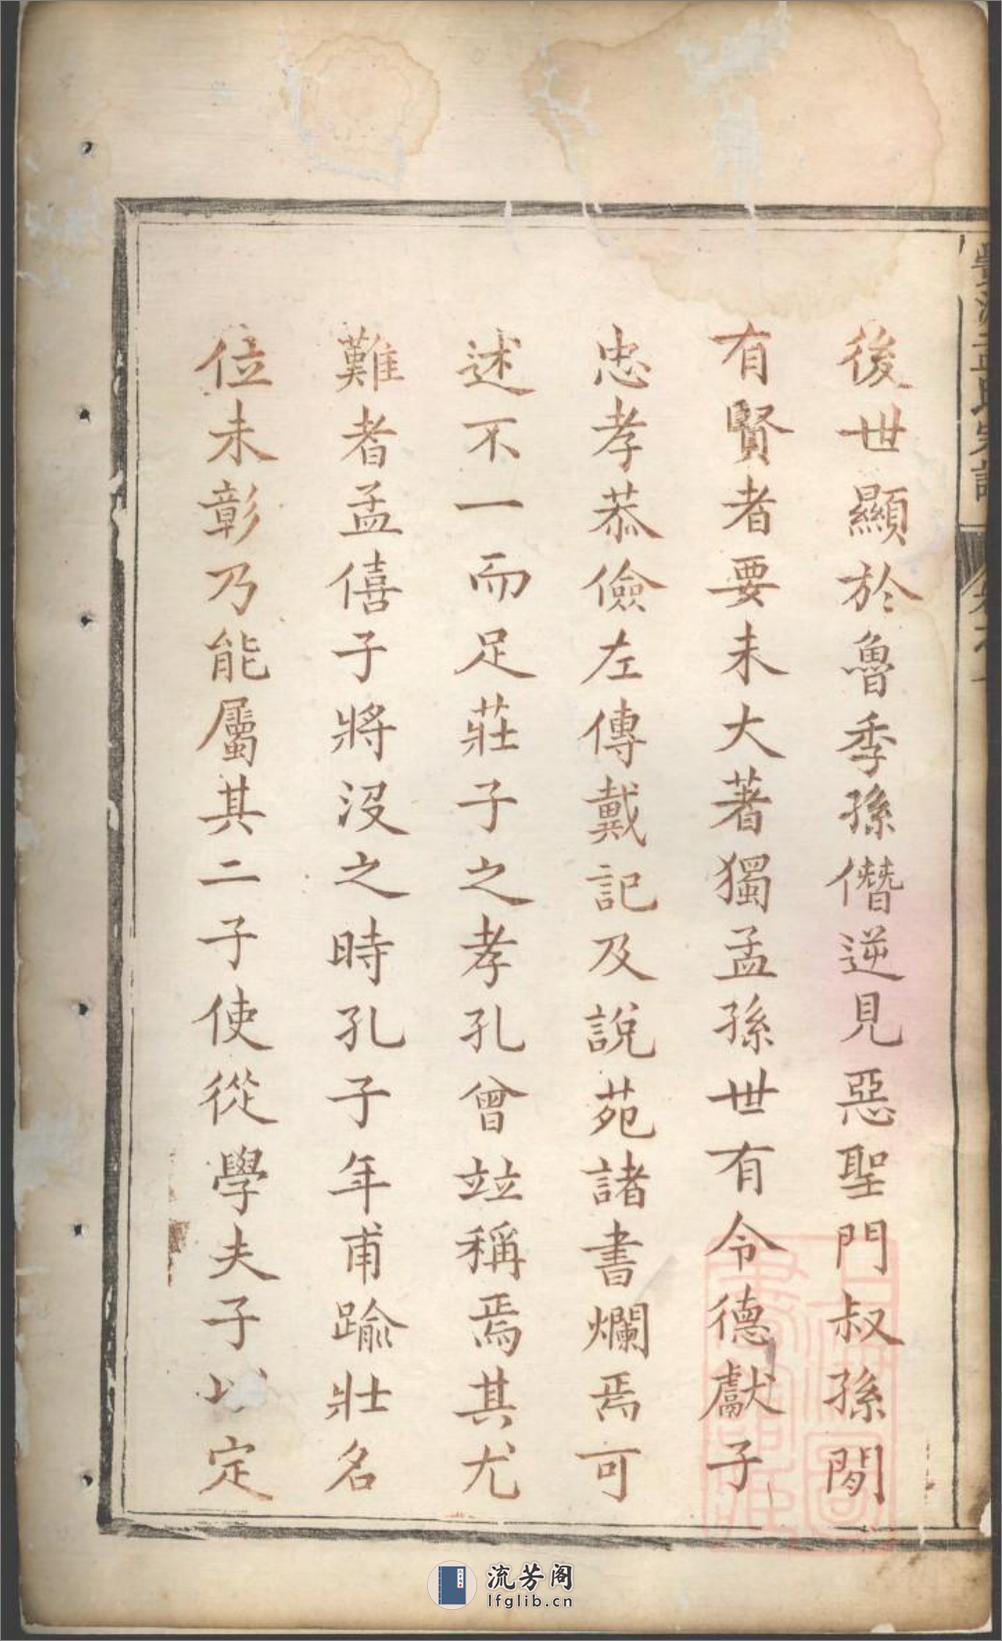 後世顯於魯季孫僭逆見惡聖門叔孫閒
有賢者要未大著獨孟孫世有令德獻子
忠孝恭儉左傳戴記及說苑諸書爛焉可
述不一而足莊子之孝孔曾竝稱焉其尤
難者孟僖子將沒之時孔子年甫踰壯名
位未彰乃能屬其二子使從學夫子以定
流芳阁
lfglib.cn